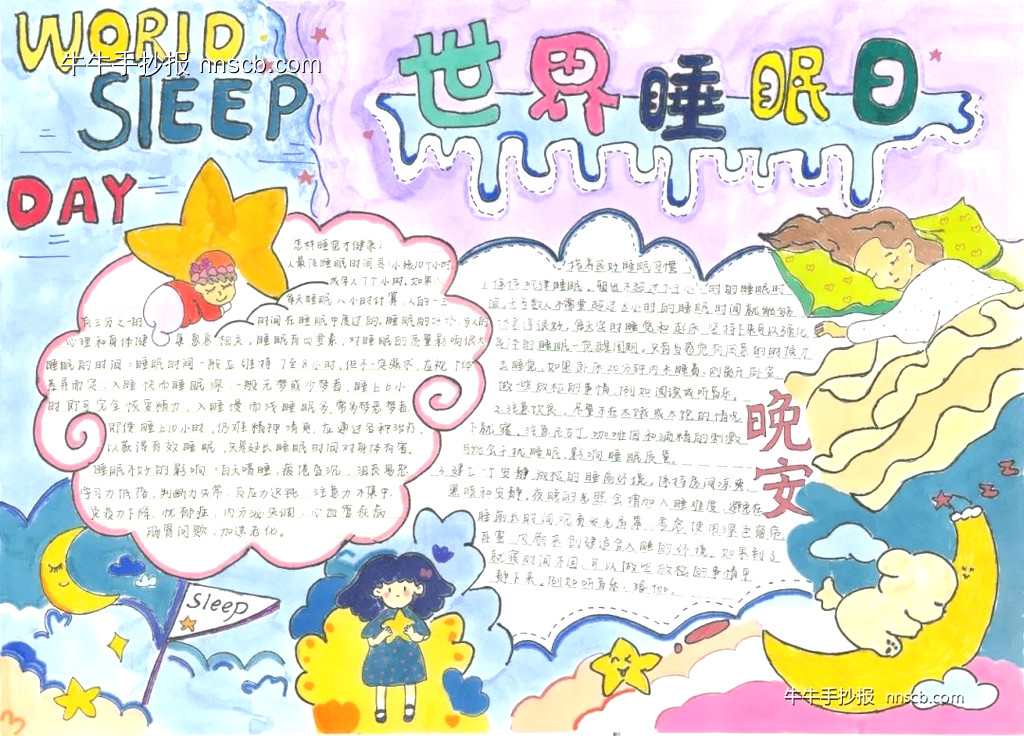 WORLD
SLEEP
DAY
牛牛手抄报 nnscb.com
世界睡眠日
怎样睡觉才健康?
人最佳睡眠时间是:小孩10个小时
每天睡眠八小时计算,人的一
有三分之一的 时间在睡眠中度过的,睡眠的好坏,与人的
心理和身体健 康息息相关。睡眠有四要素,对睡眠的质量影响很大
睡眠的时间:睡眠时间一般应维持7至8小时,但不一定强求,应视个体
差异而定,入睡快而睡眠深,一般无梦或少梦者,睡上6小
时即可完全恢复精力,入睡慢而浅睡眠多,常多梦恶梦者,
即使睡上10小时,仍难精神清爽,应通过各种治疗,
以获得有效睡眠,只是延长睡眠时间对身体有害。
睡眠不好的影响:白天嗜睡,疲倦昏沉,沮丧易怒
学习力低落,判断力失常,反应力迟钝,注意力不集中,
免疫力下降,忧郁症,内分泌失调,心血管疾病
肠胃问题,加速老化。
培养良好睡眠习惯
去睡觉,如果卧床20分钟内未睡着,则离开卧室,
做一些放松的事情,例如阅读或听音乐。
2.注意饮食,尽量不在太饿或太饱的情况
下就寝。注意尼古丁,咖啡因和酒精的刺激
会干扰睡眠,影响睡眠质量。
3.建立一个安静,放松的睡前环境。保持房间凉爽
黑暗和安静。夜晚的光照会增加入睡难度,避免在
睡前长时间观看发光屏幕,考虑使用深色窗帘,
耳塞,风扇来创建适合入睡的环境。如果到了
就寝时间不困,可以做些放松的事情平
静下来。例如听音乐,瑜伽。
晚安
z
z
z
Sleep
牛牛手抄报 nnscb.com